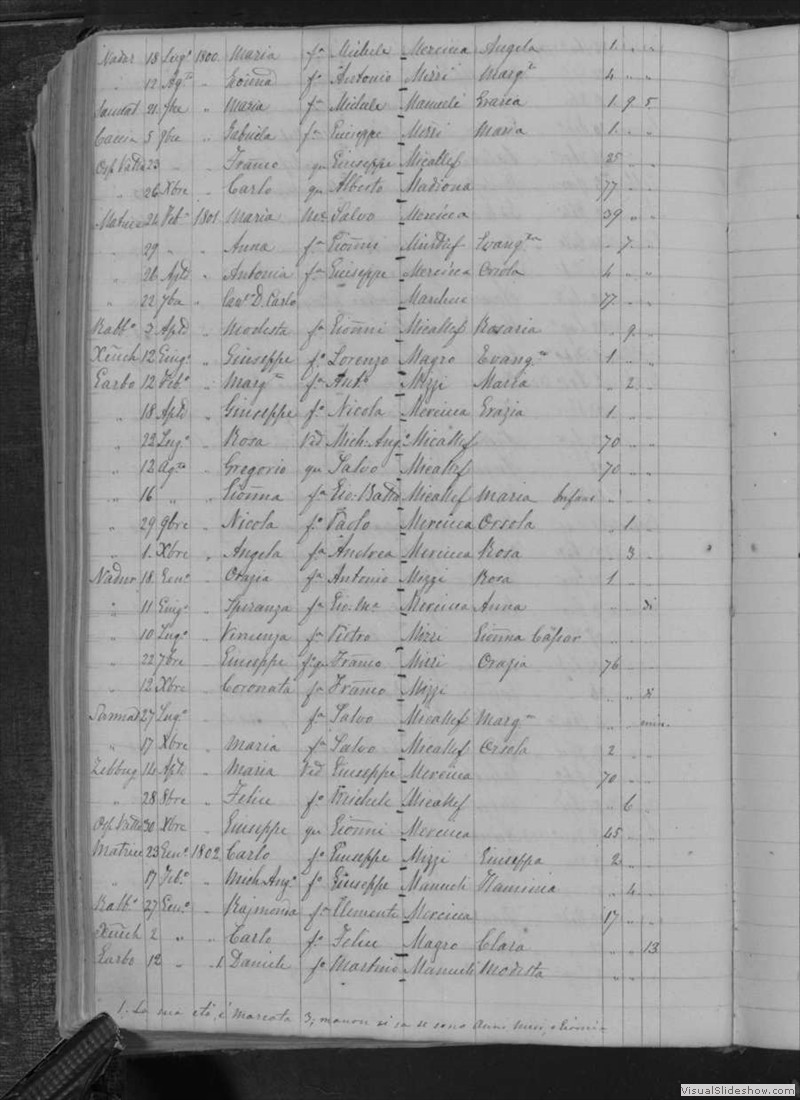 Nadur 18 Lug.o 1800 Maria fa Michele Mercieca Angela 1 " "
" 12 Ag.to " Gionna fa Antonio Mizzi Marg.ta 4 " "
Sannat 21 7bre " Maria fa Michele Manueli Grazia 1 9 5
Caccia 5 9bre " Gabriela fa Giuseppe Mizzi Maria 1 " "
Osp. Vatta 23 " " Franco qu Giuseppe Micallef 25 " "
" 26 Xbre " Carlo qu Alberto Madiona 77 " "
Matrice 24 Feb.o 1801 Maria Salvo Mercieca 39 " "
" 29 " " Anna fa Gionni Evang.ta " 7 "
" 26 Aple " Antonia fa Giuseppe Mercieca Orsola 4 " "
" 22 7bre " Cav.re D. Carlo 77 " "
Rabb.o 2 Aple " Modesta fa Gionni Micallef Rosaria " 9 "
Xeuch 12 Giug.o " Giuseppe fo Lorenzo Magro Evang.ta 1 " "
Garbo 12 Feb.o " Marg.ta fa Ant.o Mizzi Maria " 2 "
" 18 Aple " Giuseppe fo Nicola Mercieca Grazia 1 " "
" 22 Lug.o " Rosa Vid Mich. Ang.o Micallef 70 " "
" 12 Ag.to " Gregorio qu Salvo Micallef 70 " "
" 16 " " Gionna fa Gio: Batta Micallef Maria Infans " "
" 29 9bre " Nicola fo Paolo Mercieca Orsola " 1 "
" 1 Xbre " Angela fa Andrea Mercieca Rosa " 3 "
Nadur 18 Gen.o " Grazia fa Antonio Mizzi Rosa 1 " "
" 11 Giug.o " Speranza fa Gio: Ma Mercieca Anna " " di
" 10 Lug.o " Vincenza fa Pietro Mizzi Gionna Caspar " " "
" 22 7bre " Giuseppe fo qu Franco Mizzi Grazia 76 " "
" 12 Xbre " Coronata fa Franco Mizzi " " di
Sannat 27 Lug.o " fa Salvo Micallef Marg.ta " "
" 17 Xbre " Maria fa Salvo Micallef Orsola 2 " "
Zebbug 14 Aple " Maria Vid Giuseppe Mercieca 70 " "
" 28 8bre " Felice fo Michele Micallef " 6 "
Osp. Vatta 30 Xbre " Giuseppe qu Gionni Mercieca 45 " "
Matrice 23 Gen.o 1802 Carlo fo Giuseppe Mizzi Giuseppa 2 " "
" 17 Feb.o " Mich Ang.o fo Giuseppe Manueli Flaminia " 4 "
Rabb.o 27 Gen.o " Rajmonda fa Clemente Mercieca 17 " "
Xeuch 2 " " Carlo fo Felice Magro Clara " " 13
Garbo 12 " 1 Daniele fo Martino Manueli Modesta " "
1. La sua età, è marcata 3, ma non si sa se sono Anni, Mesi, o Giorni
VisualSlideshow.com